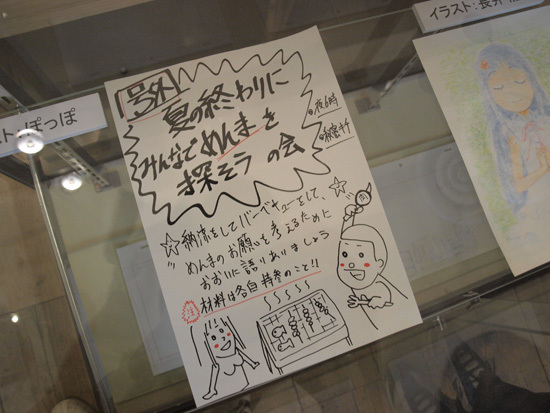 号外
夏の終わりに
みんなでめんまを
探そうの会
●夜6時
●秘密キチ
☆納涼をしてバーベキューをして、☆
めんまのお願いを考えるために
おおいに語りあいましょう
注意
材料は各自持参のこと!!
スト:ぽっぽ
イラスト:長井